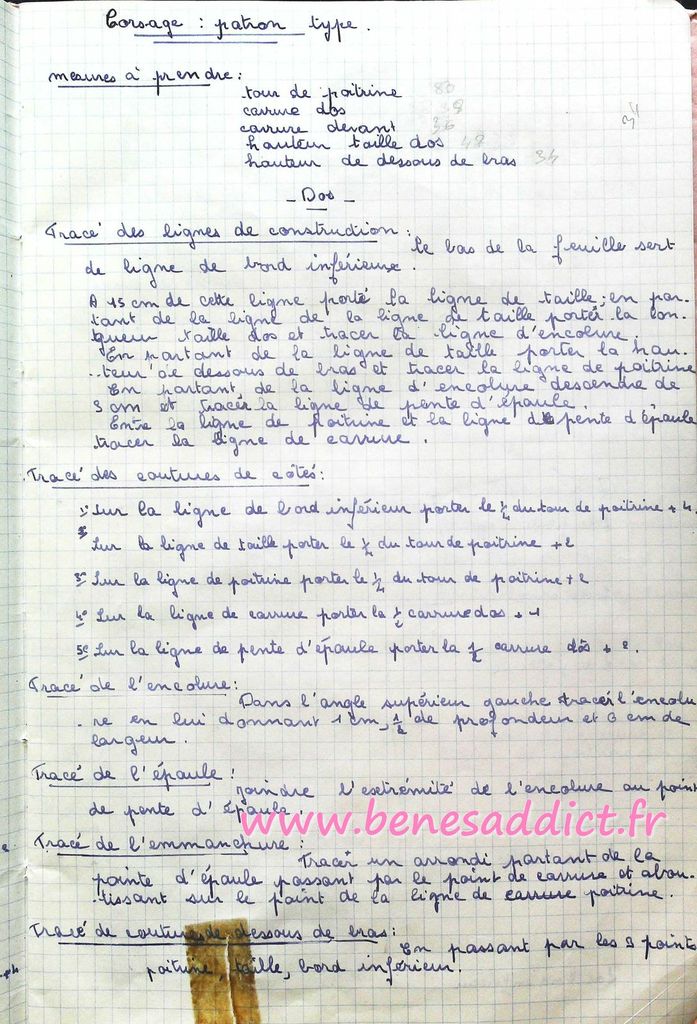 Corsage : patron type.
mesures à prendre :
tour de poitrine 80
carrure dos 38
carrure devant 36
hauteur taille dos 48
hauteur de dessous de bras 34
_ Dos _
Tracé des lignes de construction :
Le bas de la feuille sert
de ligne de bord inférieure.
A 15 cm de cette ligne porté la ligne de taille ; en par-
tant de la ligne de la ligne de taille porter la lon-
gueur taille dos et tracer la ligne d'encolure.
En partant de la ligne de taille porter la hau-
-teur de dessous de bras et tracer la ligne de poitrine
En partant de la ligne d'encolure descendre de
3 cm et tracer la ligne de pente d'épaule.
Entre la ligne de poitrine et la ligne de pente d'épaule
tracer la ligne de carrure.
Tracé des coutures de côtés :
1° Sur la ligne de bord inférieur porter le 1/4 du tour de poitrine + 4.
Sur la ligne de taille porter le 1/4 du tour de poitrine + 2
3° Sur la ligne de poitrine porter le 1/4 du tour de poitrine + 2
4° Sur la ligne de carrure porter la 1/2 carrure dos + 1
5° Sur la ligne de pente d'épaule porter la 1/2 carrure dos + 2.
Tracé de l'encolure :
Dans l'angle supérieur gauche tracer l'encolu
-re en lui donnant 1 cm, 1/2 de profondeur et 6 cm de
largeur.
Tracé de l'épaule :
joindre l'extrémité de l'encolure au point
de pente d'épaule
www.benesaddict.fr
Tracé de l'emmanchure :
Tracer un arrondi partant de la
pointe d'épaule passant par le point de carrure et abou-
-tissant sur le point de la ligne de carrure poitrine.
Tracé de couture de dessous de bras :
En passant par les 3 points
poitrine, taille, bord inférieur.